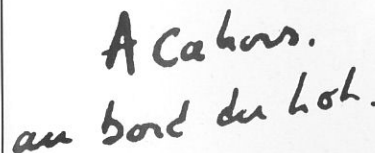 A Cahors.
au bord du Lot.